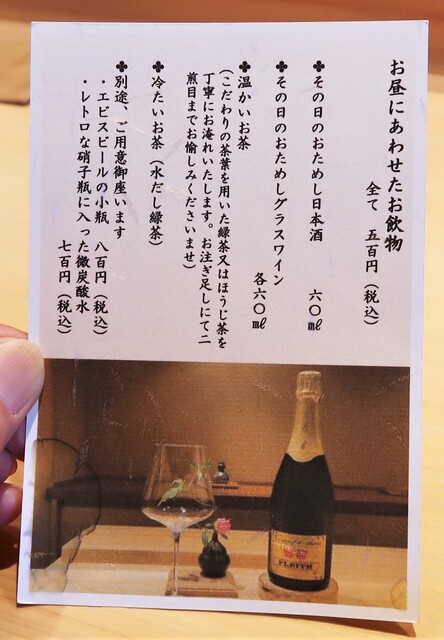 お昼にあわせたお飲物
全て　五百円（税込）
✤その日のおためし日本酒　六〇㎖
✤その日のおためしグラスワイン
各六〇㎖
✤温かいお茶
（こだわりの茶葉を用いた緑茶又はほうじ茶を
丁寧にお淹れいたします。お注ぎ足しにて二
煎目までお愉しみくださいませ）
✤冷たいお茶（水だし緑茶）
✤別途、ご用意御座います
・エビスビールの小瓶　八百円（税込）
・レトロな硝子瓶に入った微炭酸水
七百円（税込）